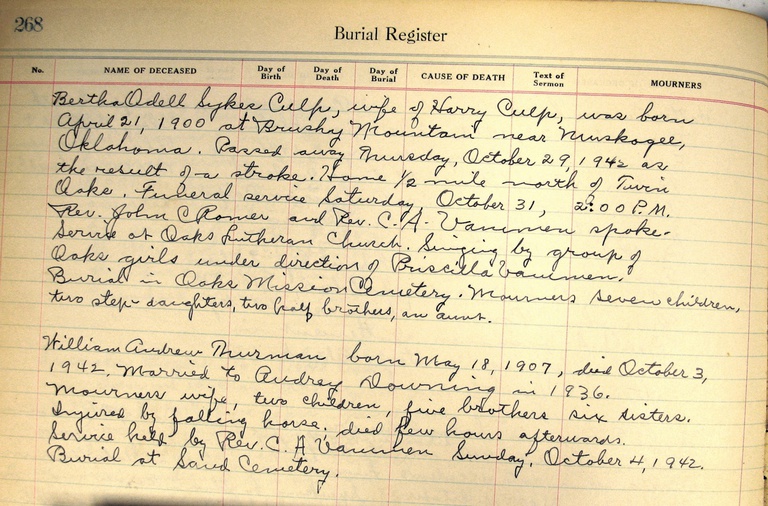 268
Burial Register
No. NAME OF DECEASED Day of Birth Day of Death Day of Burial CAUSE OF DEATH Text of Sermon MOURNERS
Bertha Odell Sykes Culp, wife of Harry Culp, was born
April 21, 1900 at Brushy Mountain near Muskogee,
Oklahoma. Passed away Thursday, October 29, 1942 as
the result of a stroke. Home 1/2 mile north of Twin
Oaks. Funeral service Saturday, October 31, 2:00 P.M.
Rev. John C Romer and Rev. C. A. Vammen spoke.
Service at Oaks Lutheran Church. Singing by group of
Oaks girls under direction of Priscilla Vammen.
Burial in Oaks Mission Cemetery. Mourners seven children,
two step-daughters, two half brothers, an aunt.
William Andrew Thurman born May 18, 1907, died October 3,
1942. Married to Audrey Downing in 1936.
Mourners wife, two children, five brothers six sisters.
Injured by falling horse. died few hours afterwards.
Service held by Rev. C. A Vammen Sunday, October 4, 1942.
Burial at Sand Cemetery.